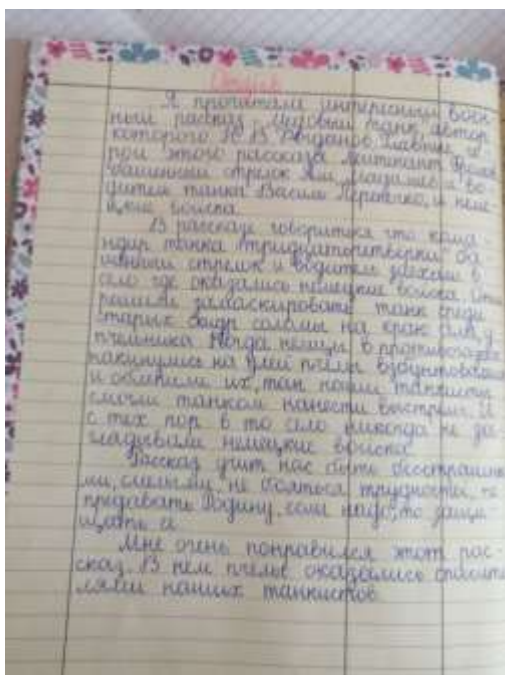 Отзыв
Я прочитала интересный воен-
ный рассказ "Медовый танк" автор
которого Ю. В. Рогданов. Главные ге-
рои этого рассказа лейтенант
башенный стрелок и во-
дитель танка Василь Перепечко, и неме-
цкие войска.
В рассказе говориться что кома-
ндир танка тридцатьчетверки ба-
шенный стрелок и водитель заехали в
село где оказались немецкие войска. Они
решили замаскировать танк среди
старых скирд соломы на краю села, у
пчельника. Когда немцы в противогазах
накинулись на улей пчелы взбунтовались
и облепили их, так наши танкисты
смогли танком нанести выстрел. И
с тех пор в то село никогда не за-
гладывали немецкие войска.
Рассказ учит нас быть бесстрашны-
ми, смелыми, не бояться трудностей, не
предавать Родину, если надо, то защи-
щать её.
Мне очень понравился этот рас-
сказ. В нем пчелы оказались спасите-
лями наших танкистов.